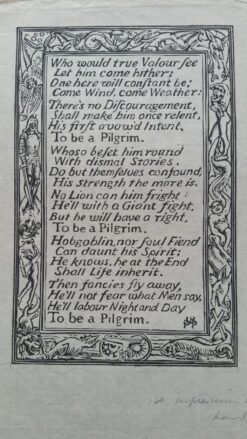 Who would true Valour see
Let him come hither;
One here will constant be;
Come Wind, come Weather:
There's no Discouragement,
Shall make him once relent,
His first avow'd Intent.
To be a Pilgrim.
Whoso beset him round
With dismal Stories.
Do but themselves confound,
His strength the more is.
No Lion can him fright:
He'll with a Giant fight,
But he will have a right,
To be a Pilgrim.
Hobgoblin, nor foul Fiend
Can daunt his Spirit:
He knows, he at the End
Shall Life inherit.
Then fancies fly away,
He'll not fear what Men say,
He'll labour Night and Day
To be a Pilgrim.